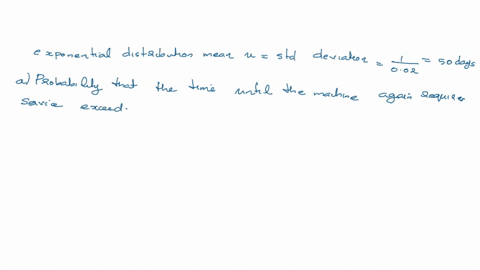 exponential distribution mean u = std deviation = 1/0.02 = 50 days
a) Probability that the time until the machine again requires
service exceed.